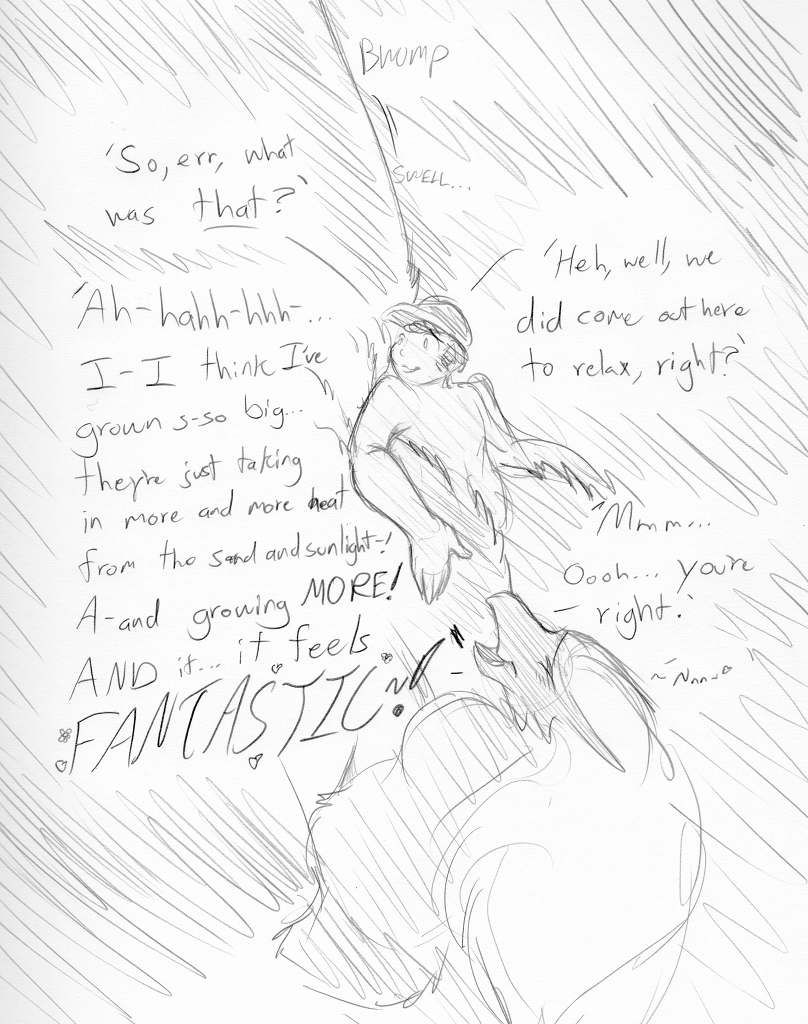 Bwomp
SWELL...
'So, err, what
was that?'
'Heh, well, we
did come out here
to relax, right?'
'Ah-hahh-hhh-...
I-I think I've
grown s-so big...
they're just taking
in more and more heat
from the sand and sunlight-!
A-and growing MORE!
AND it... it feels
FANTASTIC~!'
'Mmm...
Oooh... you're
right.'
~'Nnn~